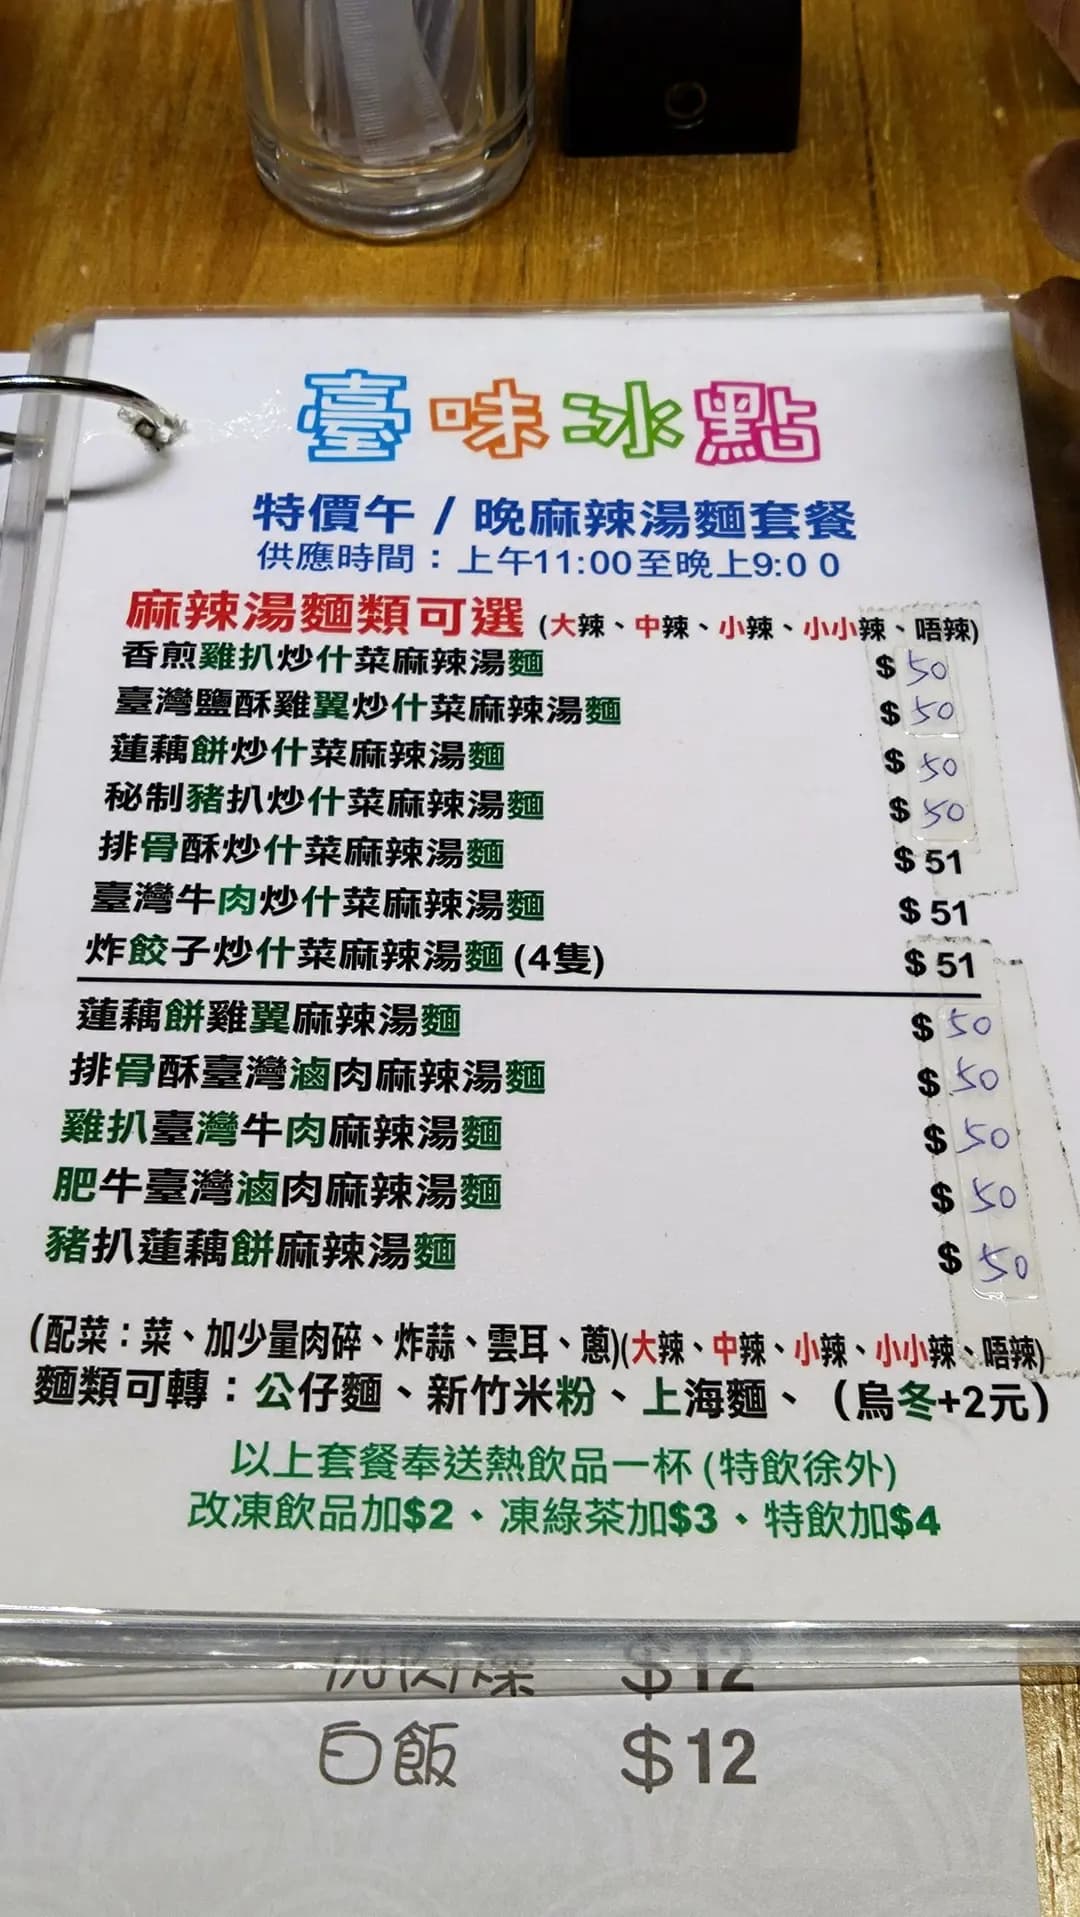 臺味冰點
特價午 / 晚麻辣湯麵套餐
供應時間：上午11:00至晚上9:00
麻辣湯麵類可選 (大辣、中辣、小辣、小小辣、唔辣)
香煎雞扒炒什菜麻辣湯麵 $50
臺灣鹽酥雞翼炒什菜麻辣湯麵 $50
蓮藕餅炒什菜麻辣湯麵 $50
秘制豬扒炒什菜麻辣湯麵 $50
排骨酥炒什菜麻辣湯麵 $51
臺灣牛肉炒什菜麻辣湯麵 $51
炸餃子炒什菜麻辣湯麵 (4隻) $51
蓮藕餅雞翼麻辣湯麵 $50
排骨酥臺灣滷肉麻辣湯麵 $50
雞扒臺灣牛肉麻辣湯麵 $50
肥牛臺灣滷肉麻辣湯麵 $50
豬扒蓮藕餅麻辣湯麵 $50
(配菜：菜、加少量肉碎、炸蒜、雲耳、蔥)(大辣、中辣、小辣、小小辣、唔辣)
麵類可轉：公仔麵、新竹米粉、上海麵、（烏冬+2元）
以上套餐奉送熱飲品一杯 (特飲徐外)
改凍飲品加$2、凍綠茶加$3、特飲加$4
$12
白飯 $12